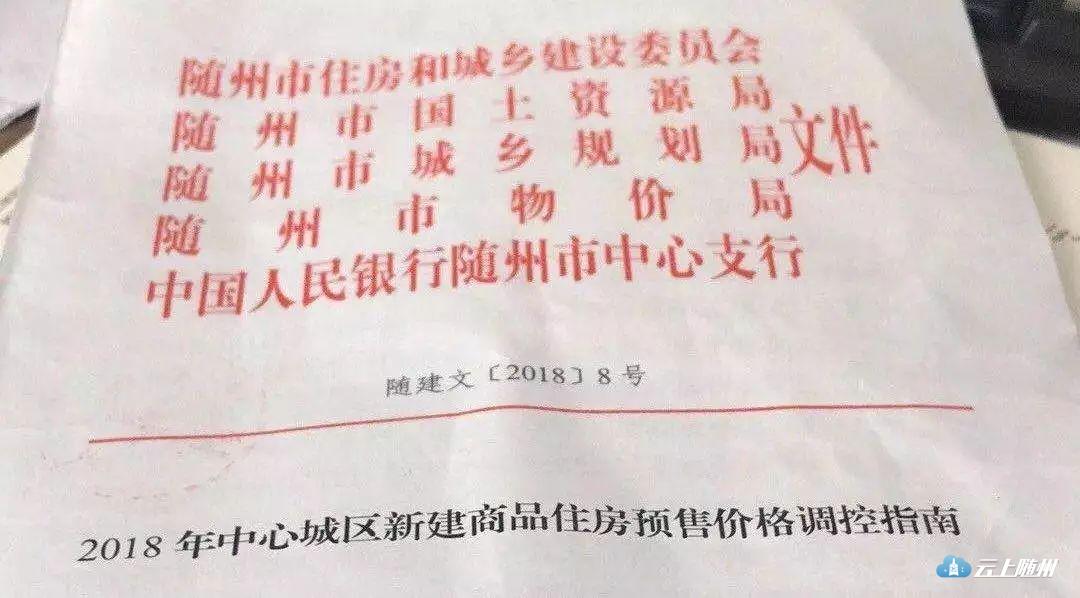 随州市住房和城乡建设委员会
随州市国土资源局
随州市城乡规划局 文件
随州市物价局
中国人民银行随州市中心支行
随建文〔2018〕8号
2018年中心城区新建商品住房预售价格调控指南
云上随州